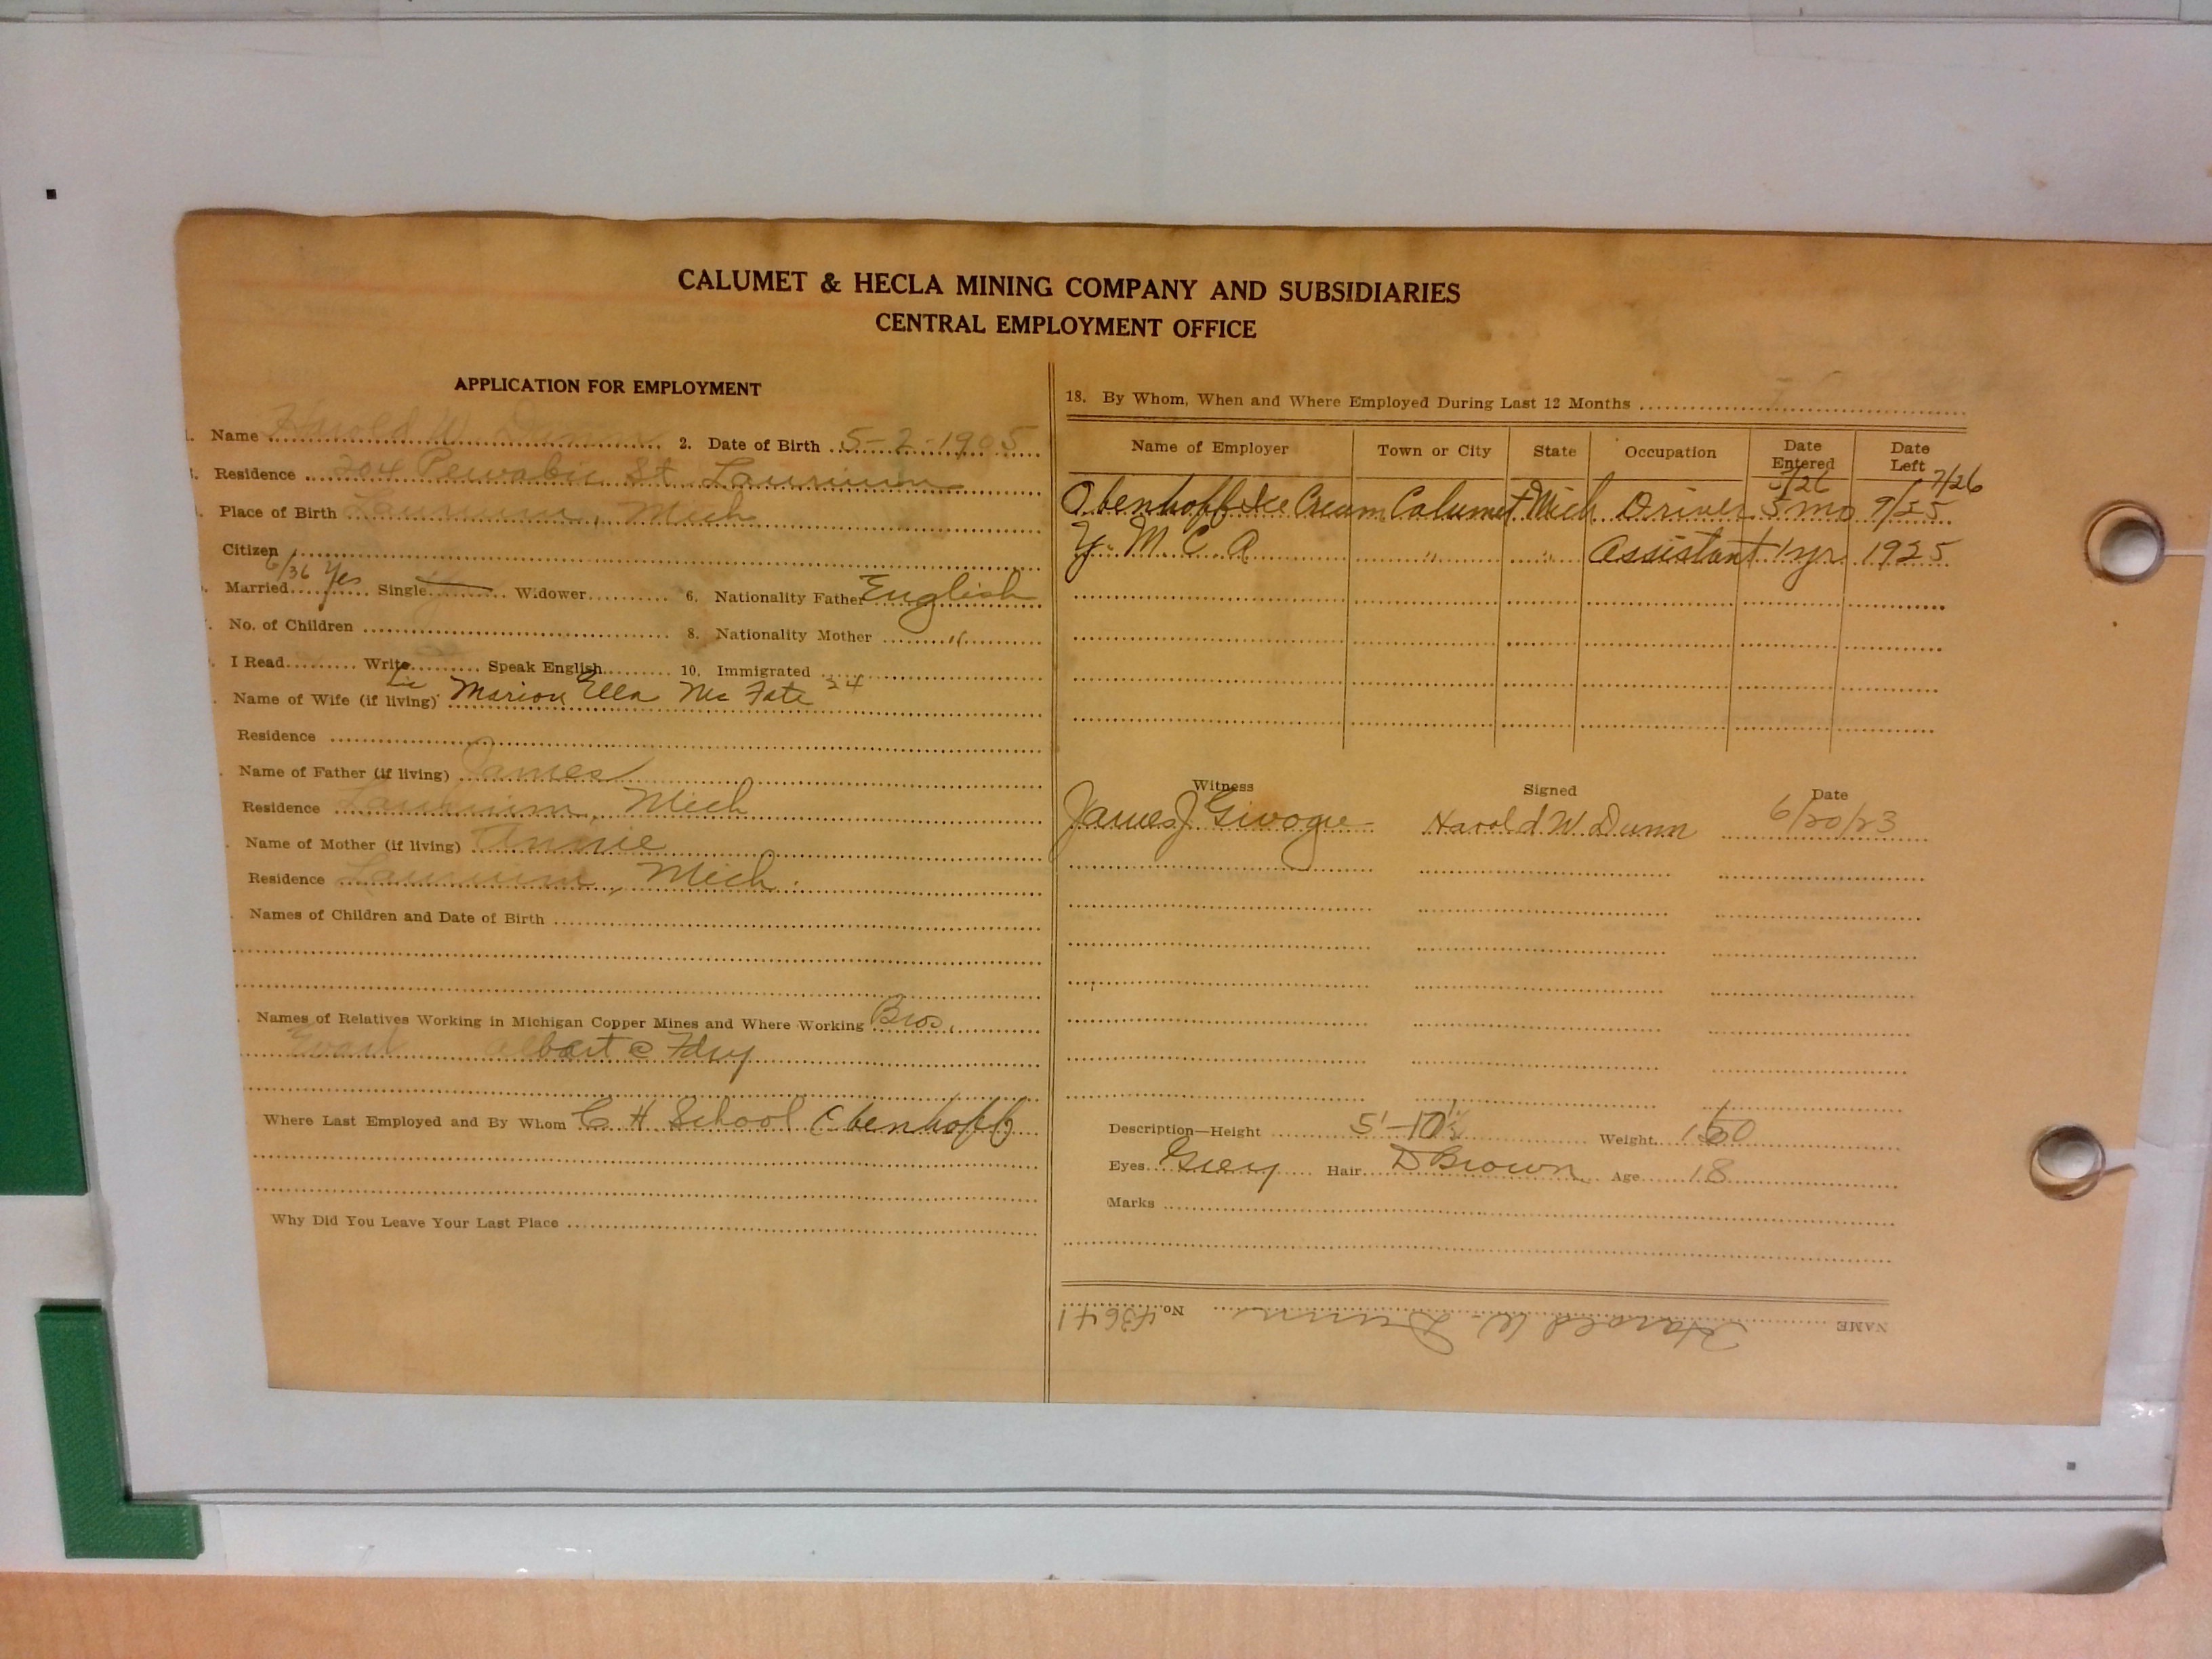 CALUMET & HECLA MINING COMPANY AND SUBSIDIARIES
CENTRAL EMPLOYMENT OFFICE
APPLICATION FOR EMPLOYMENT
1. Name Harold W. Dunn 2. Date of Birth 5-2-1905
Residence 204 Pewabic St. Laurium
Place of Birth Laurium, Mich
Citizen
6/36 Yes
Married Single Widower 6. Nationality Father English
No. of Children 8. Nationality Mother "
I Read Write Speak English 10. Immigrated
Name of Wife (if living) Marion Ella Mc Fate 24
Residence
Name of Father (if living) James
Residence Laurium, Mich
Name of Mother (if living) Annie
Residence Laurium, Mich.
Names of Children and Date of Birth
Names of Relatives Working in Michigan Copper Mines and Where Working Bros.
Albert C Fdry
Where Last Employed and By Whom C H School Obenhoff
Why Did You Leave Your Last Place
18. By Whom, When and Where Employed During Last 12 Months
Name of Employer Town or City State Occupation Date Entered Date Left
5/26 7/26
Obenhoff Ice Cream Calumet Mich Driver 5 mo 9/25
Y. M. C. A. " " Assistant 1 yr. 1925
Witness Signed Date
James J. Harold W. Dunn 6/20/23
Description—Height 5'-10½ Weight 150
Eyes Grey Hair D Brown Age 18
Marks
NAME Harold W. Dunn No. 43641